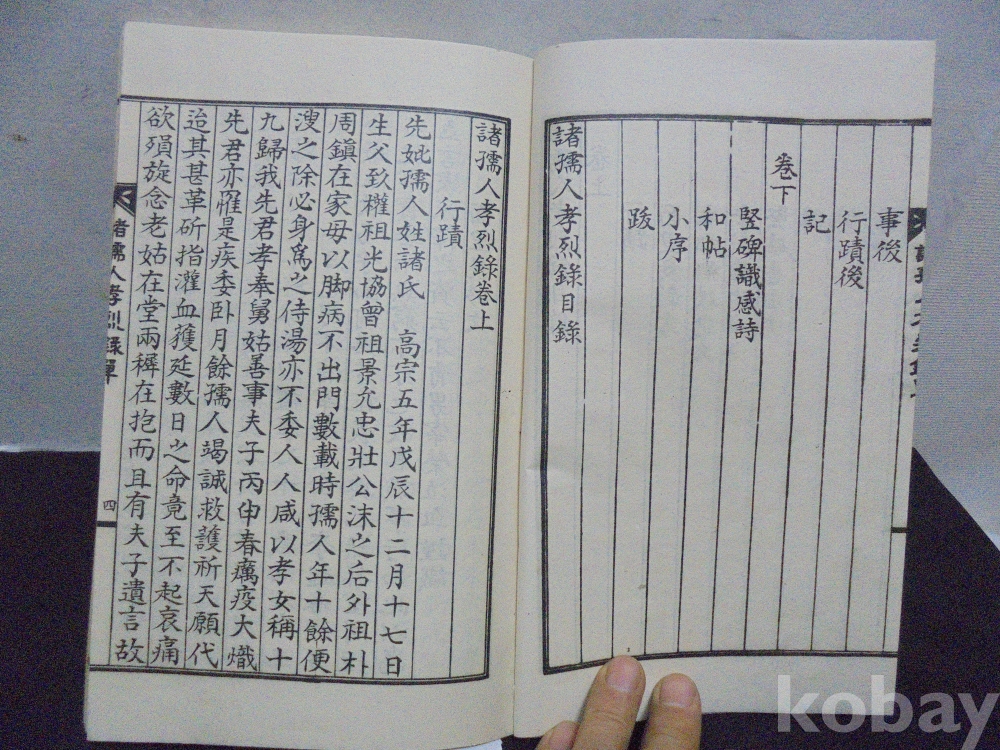 事後
行蹟後
記
卷下
竪碑識感詩
和帖
小序
跋
諸孺人孝烈錄目錄
諸孺人孝烈錄卷上
行蹟
先妣孺人姓諸氏 高宗五年戊辰十二月十七日
生父致權祖光協曾祖景允忠壯公沫之后外祖朴
周鎭在家毋以脚病不出門數載時孺人年十餘便
溲之除必身爲之侍湯亦不委人人咸以孝女稱十
九歸我先君孝奉舅姑善事夫子丙申春癘疫大熾
先君亦罹是疾委卧月餘孺人竭誠救護祈天願代
迨其甚革斫指灌血獲延數日之命竟至不起哀痛
欲殞旋念老姑在堂兩穉在抱而且有夫子遺言故
諸孺人孝烈錄單
四
kobay